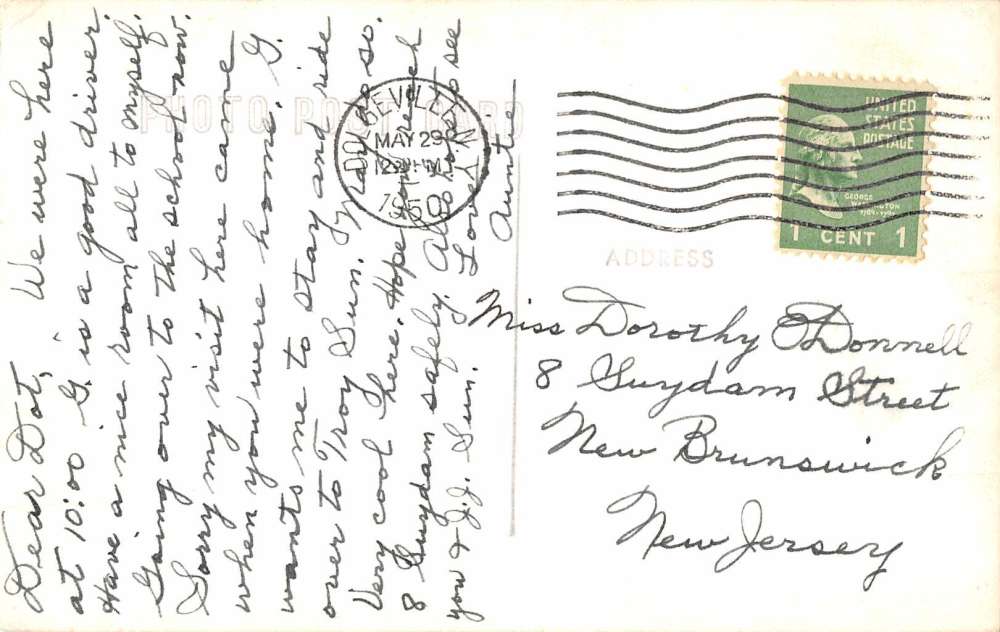 Dear Dot, We were here
at 10:00 G. is a good driver.
Have a nice room all to myself.
Going over to the school now.
Sorry my visit here came
when you were home. G.
wants me to stay and ride
over to Troy Sun. I may do so.
Very cool here. Hope reach
8 Suydam safely. Also to see
you & J.J. Sun. Love
Auntie
PHOTO POST CARD
NY
MAY 29
12 PM
1950
UNITED
STATES
POSTAGE
GEORGE
WASHINGTON
1 CENT 1
ADDRESS
Miss Dorothy O'Donnell
8 Suydam Street
New Brunswick
New Jersey